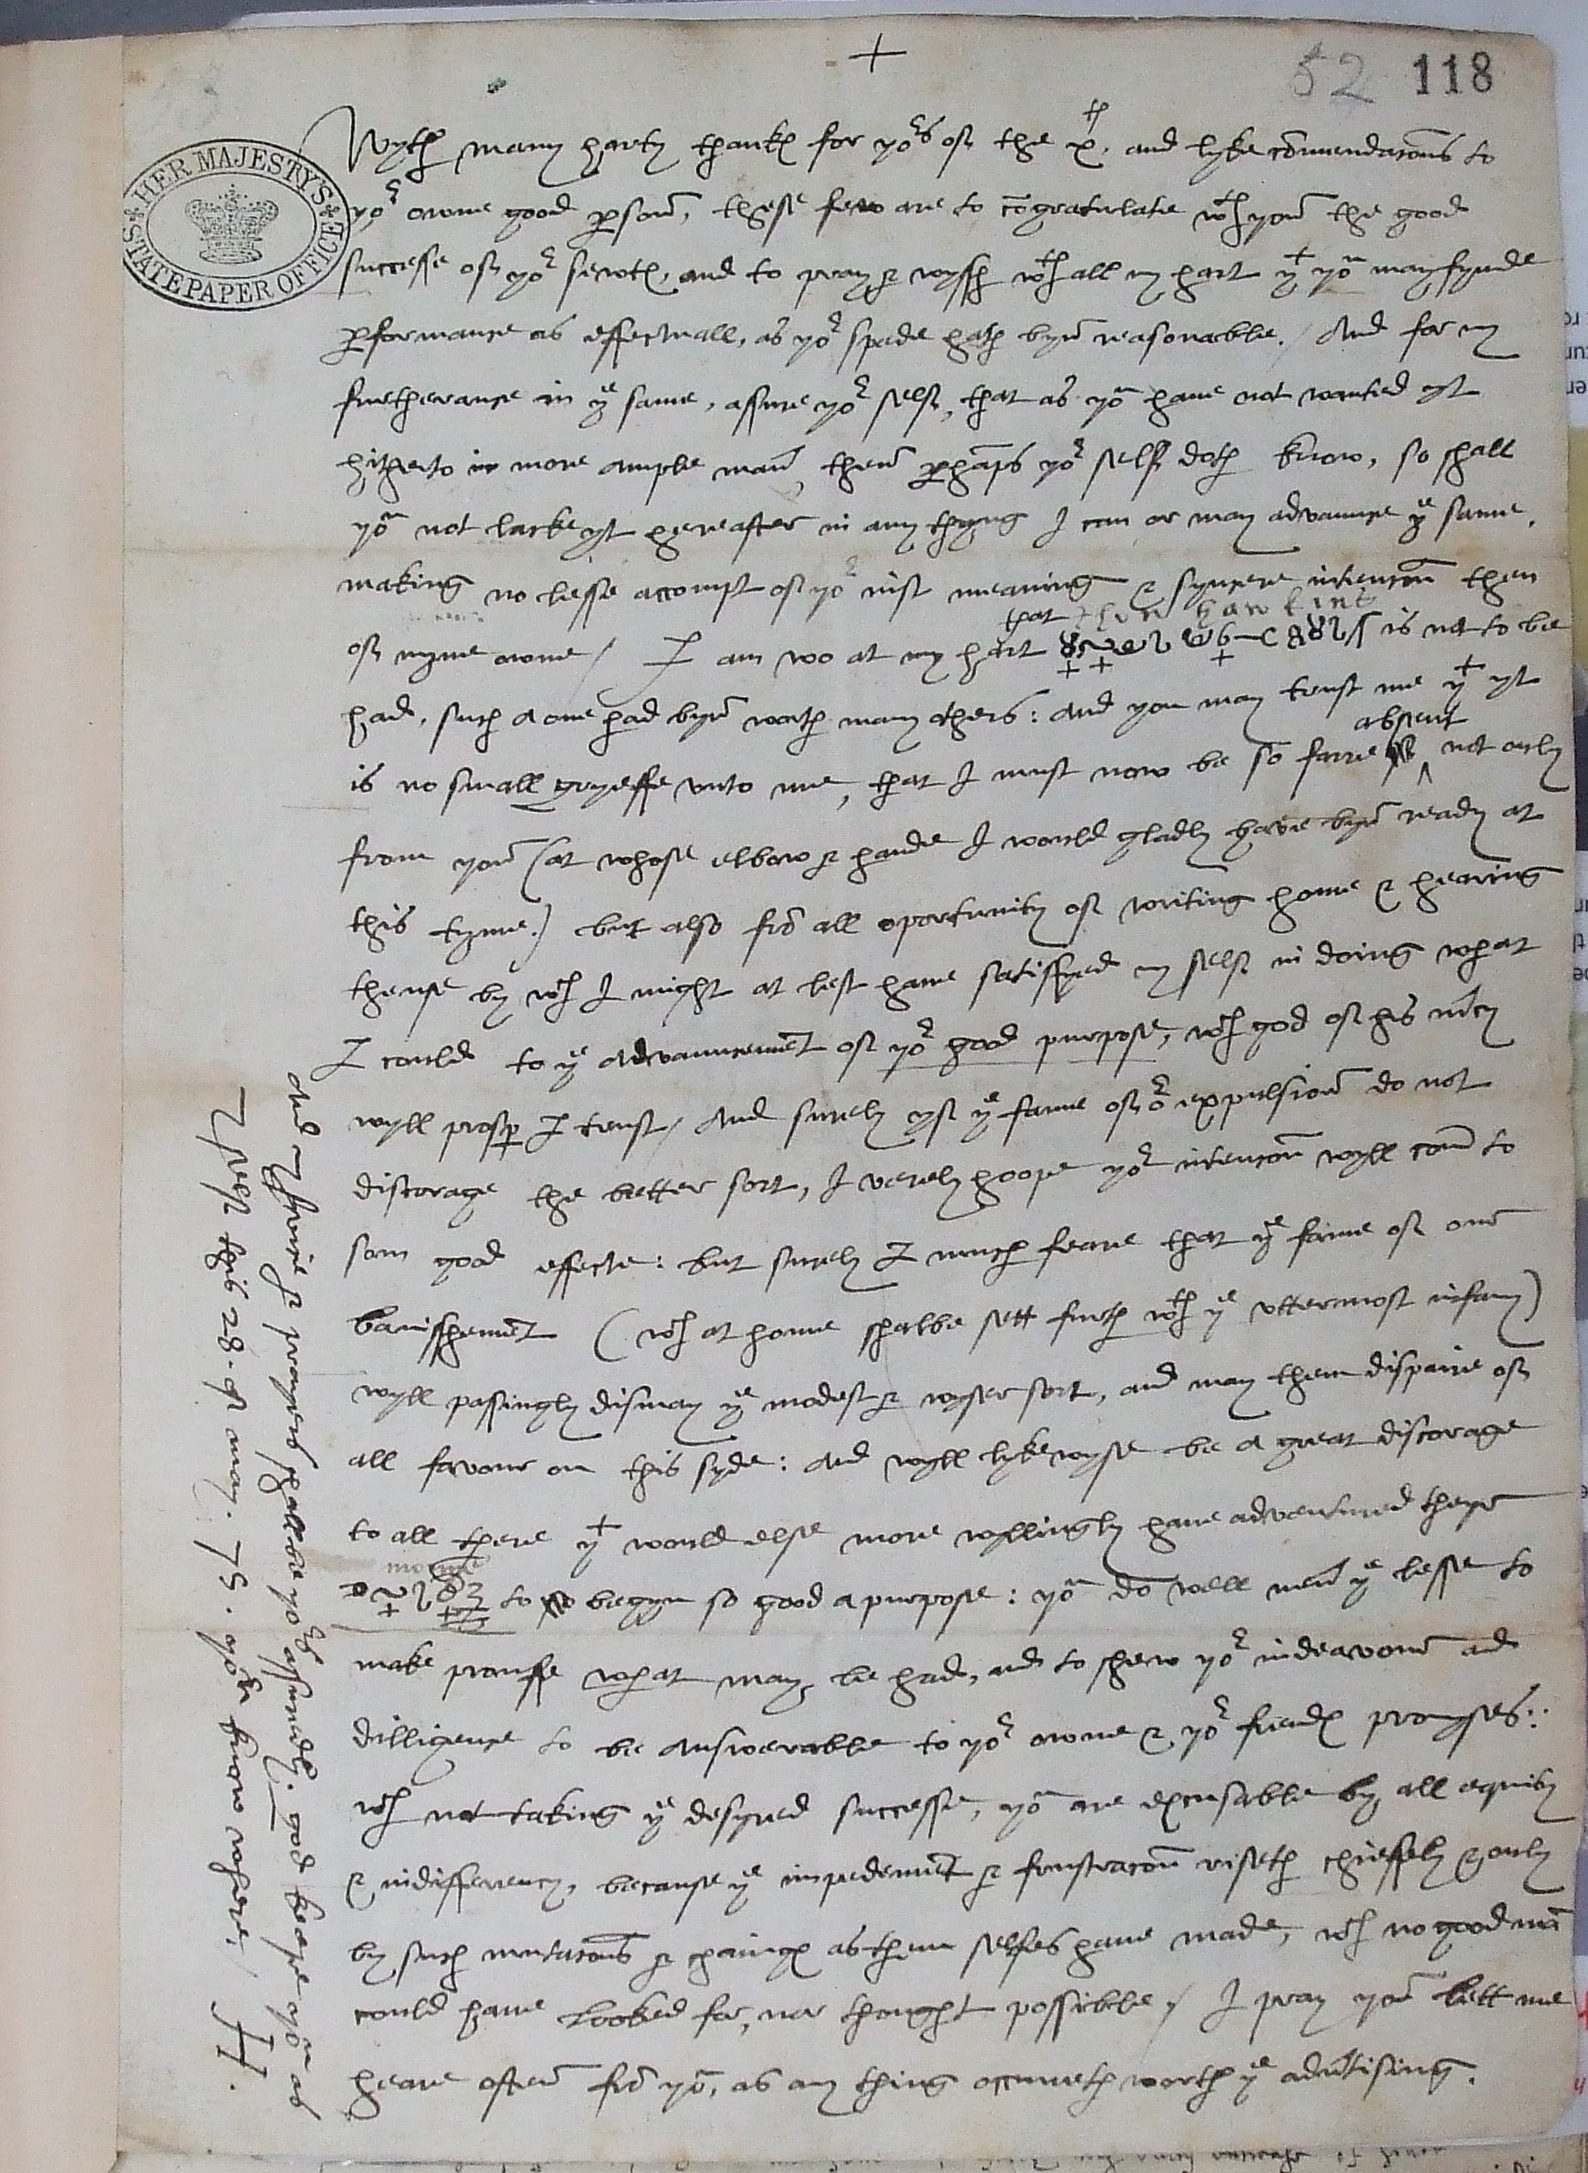 +
52 118
HER MAJESTY'S STATE PAPER OFFICE
Wyth many harty thankes for yors of the xth, and lyke cōmendacōns to
yor owne good pson, these few are to cōgratulate wth you the good
successe of yor sewte, and to pray & wyssh wth all my hart yt you may fynde
pformance as effectuall, as yor spede hath byn reasonable. / And for my
furtherance in ye same, assure yor self, that as you have not wanted yt
hitherto in more ample man, then phaps yor self doth know, so shall
you not lacke yt hereafter in any thyng I can or may advaunce ye same,
making no lesse accompt of yor iust meaning & syncere intencōn then
that Jhon hawkins
of myne owne / I am wo at my hart is not to be
had, such a one had byn worth many others: and you may trust me yt yt
absent
is no small gryeffe vnto me, that I must now be so farre not only
from you (at whose elbow & hande I would gladly have byn ready at
this tyme.) but also frō all oportunity of writing home & hearing
thense by wch I might at lest have satisfyed my self in doing what
I could to ye advauncemēt of yor good purpose, wch god of his mcy
wyll prosp I trust / And surely yf ye fame of or expulsion do not
discorage the better sort, I verely hoope yor intencōn wyll com to
som good effecte: but surely I much feare that ye fame of our
banisshemēt (wch at home shalbe sett furth wth ye vttermost infamy)
wyll passingly dismay ye modest & wyser sort, and may them dispaire of
all favour on this syde: And wyll lykewyse be a great discorage
to all there yt would else more wyllingly have adventured theyr
to begyn so good a purpose: you do well neu ye lesse to
make prouffe what may be had, and to shew yor indeavour and
dilligence to be answerable to yor owne & yor friendes promyses:
wch not taking ye desyred successe, you are excusable by all equity
& indifferency, because ye impedemēt & frustracōn riseth chieffely & only
by such mutacōns & chainges as them selfes have made, wch no good mā
could have looked for, nor thought possible, / I pray you lett me
heare often frō you, as any thing occurreth worth ye advtising.
And & prayers shallbe yors assuredly. god keepe you as
self this 28. of may. 75. you know where, / H.